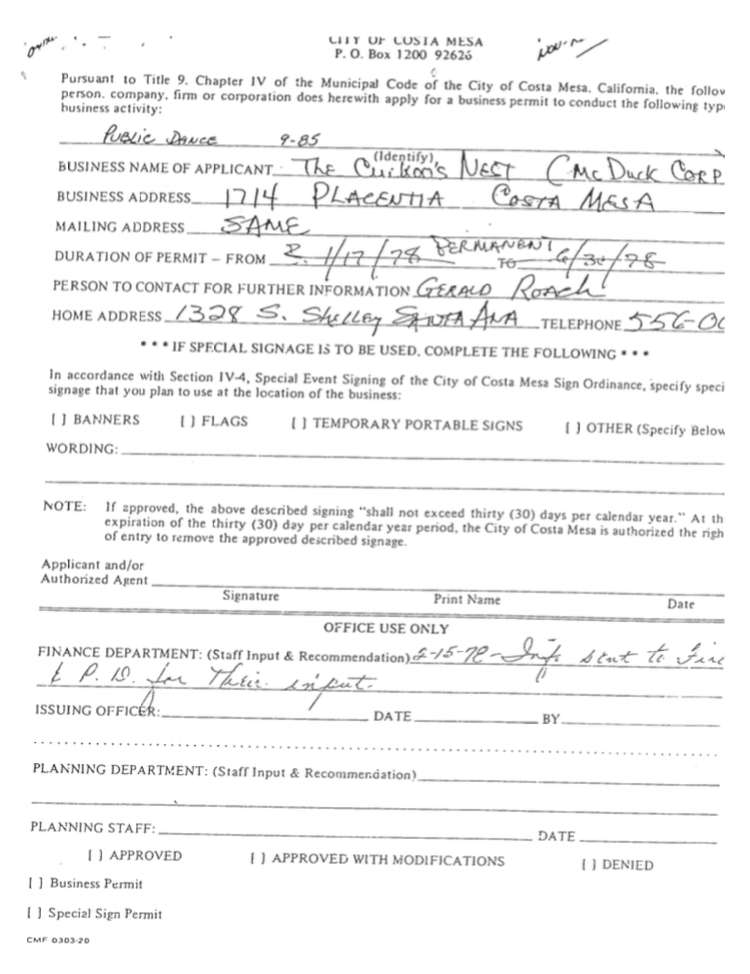 CITY OF COSTA MESA
P. O. Box 1200 92626
Pursuant to Title 9, Chapter IV of the Municipal Code of the City of Costa Mesa, California, the follow
person, company, firm or corporation does herewith apply for a business permit to conduct the following typ
business activity:
Public Dance 9-85
(Identify)
BUSINESS NAME OF APPLICANT The Cuckoo's Nest (McDuck Corp
BUSINESS ADDRESS 1714 PLACENTIA COSTA MESA
MAILING ADDRESS SAME
DURATION OF PERMIT – FROM 1/17/78 PERMANENT TO 6/30/78
PERSON TO CONTACT FOR FURTHER INFORMATION GERALD ROACH
HOME ADDRESS 1328 S. Shelley SANTA ANA TELEPHONE 556-00
* * * IF SPECIAL SIGNAGE IS TO BE USED, COMPLETE THE FOLLOWING * * *
In accordance with Section IV-4, Special Event Signing of the City of Costa Mesa Sign Ordinance, specify speci
signage that you plan to use at the location of the business:
[ ] BANNERS [ ] FLAGS [ ] TEMPORARY PORTABLE SIGNS [ ] OTHER (Specify Below
WORDING:
NOTE: If approved, the above described signing "shall not exceed thirty (30) days per calendar year." At th
expiration of the thirty (30) day per calendar year period, the City of Costa Mesa is authorized the righ
of entry to remove the approved described signage.
Applicant and/or
Authorized Agent
Signature Print Name Date
OFFICE USE ONLY
FINANCE DEPARTMENT: (Staff Input & Recommendation) 2-15-78 - Info sent to Fire
& P. D. for Their input.
ISSUING OFFICER: DATE BY
PLANNING DEPARTMENT: (Staff Input & Recommendation)
PLANNING STAFF: DATE
[ ] APPROVED [ ] APPROVED WITH MODIFICATIONS [ ] DENIED
[ ] Business Permit
[ ] Special Sign Permit
CMF 0303-20